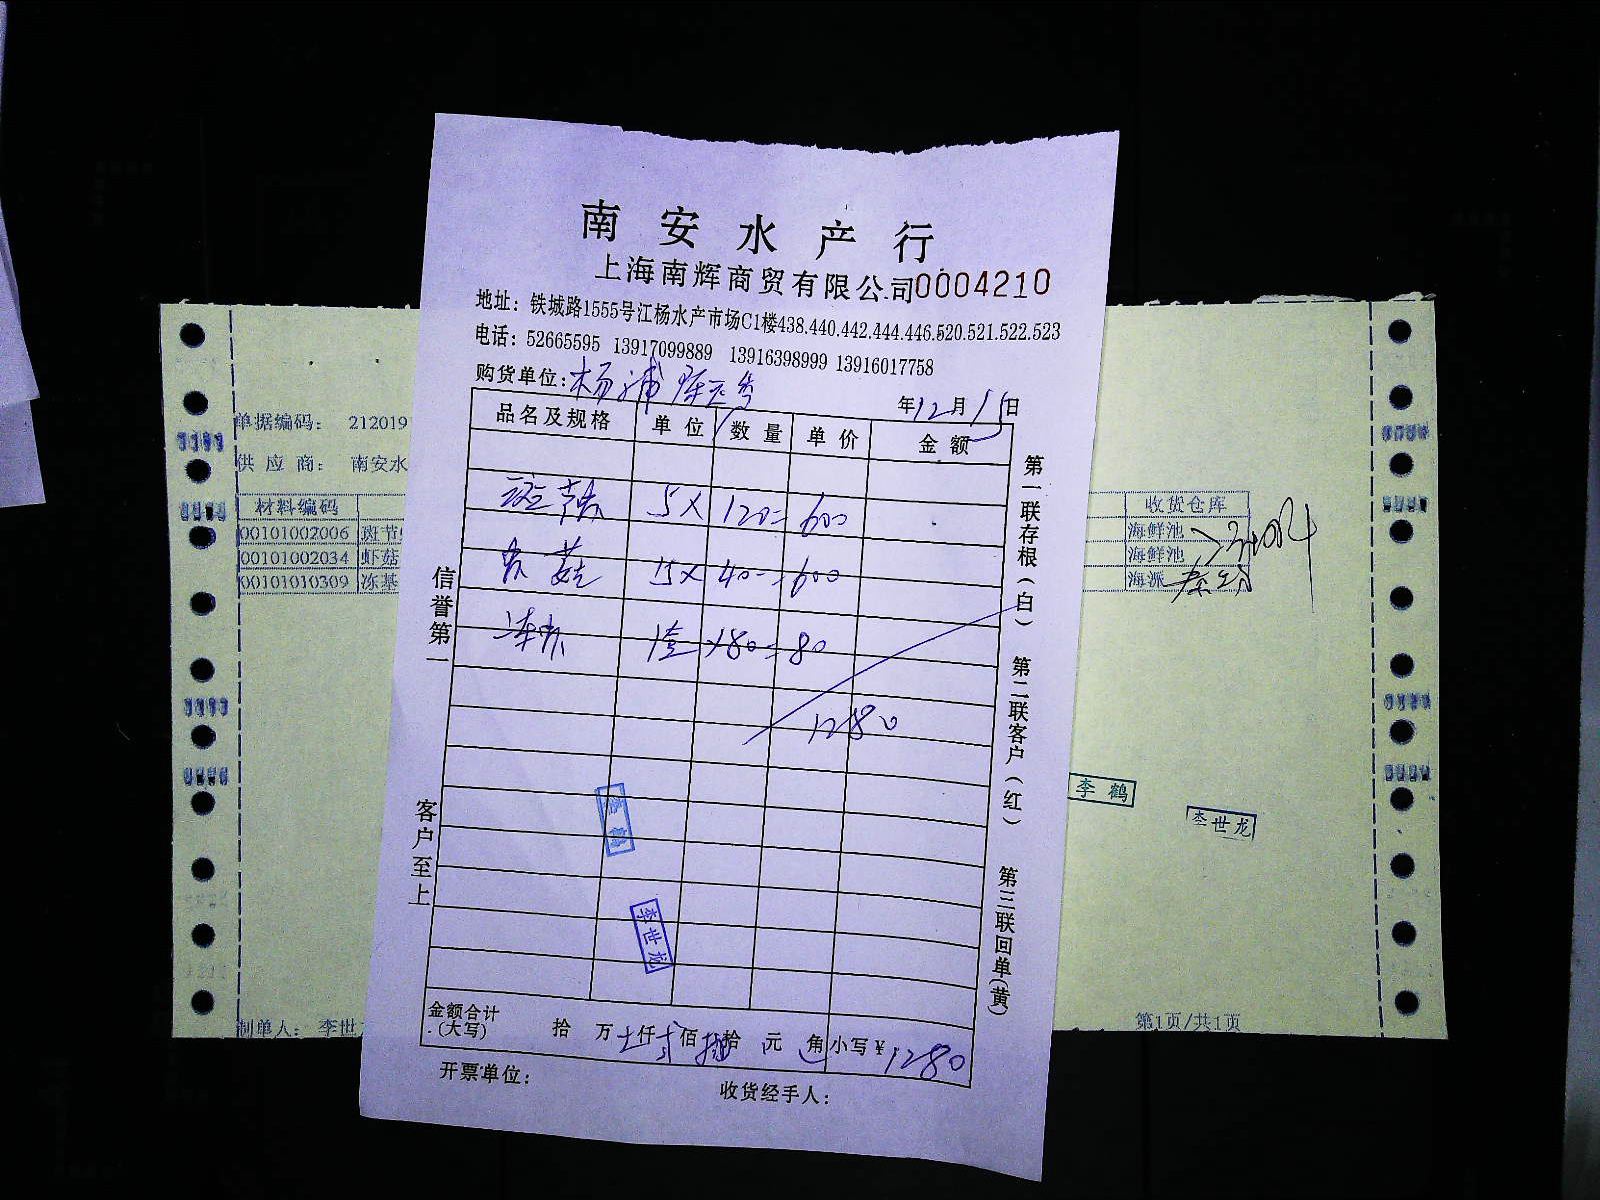 南安水产行
上海南辉商贸有限公司0004210
地址：铁城路1555号江杨水产市场C1楼438.440.442.444.446.520.521.522.523
电话：52665595 13917099889 13916398999 13916017758
购货单位：杨浦
年12月15日
品名及规格 单位 数量 单价 金额
斑节 5× 120= 600
菇 15× 40=600
冻 1 ×80=80
1280
李鹤
李世龙
金额合计（大写） 拾 万 仟 佰 捌拾 元 角 小写¥1280
开票单位： 收货经手人：
信誉第一
客户至上
第一联存根（白）
第二联客户（红）
第三联回单（黄）
单据编码： 212019
供应商： 南安水
材料编码 收货仓库
00101002006 斑节 海鲜池
00101002034 虾菇 海鲜池
00101010309 冻基 海派
李鹤
李世龙
制单人： 李世 第1页/共1页